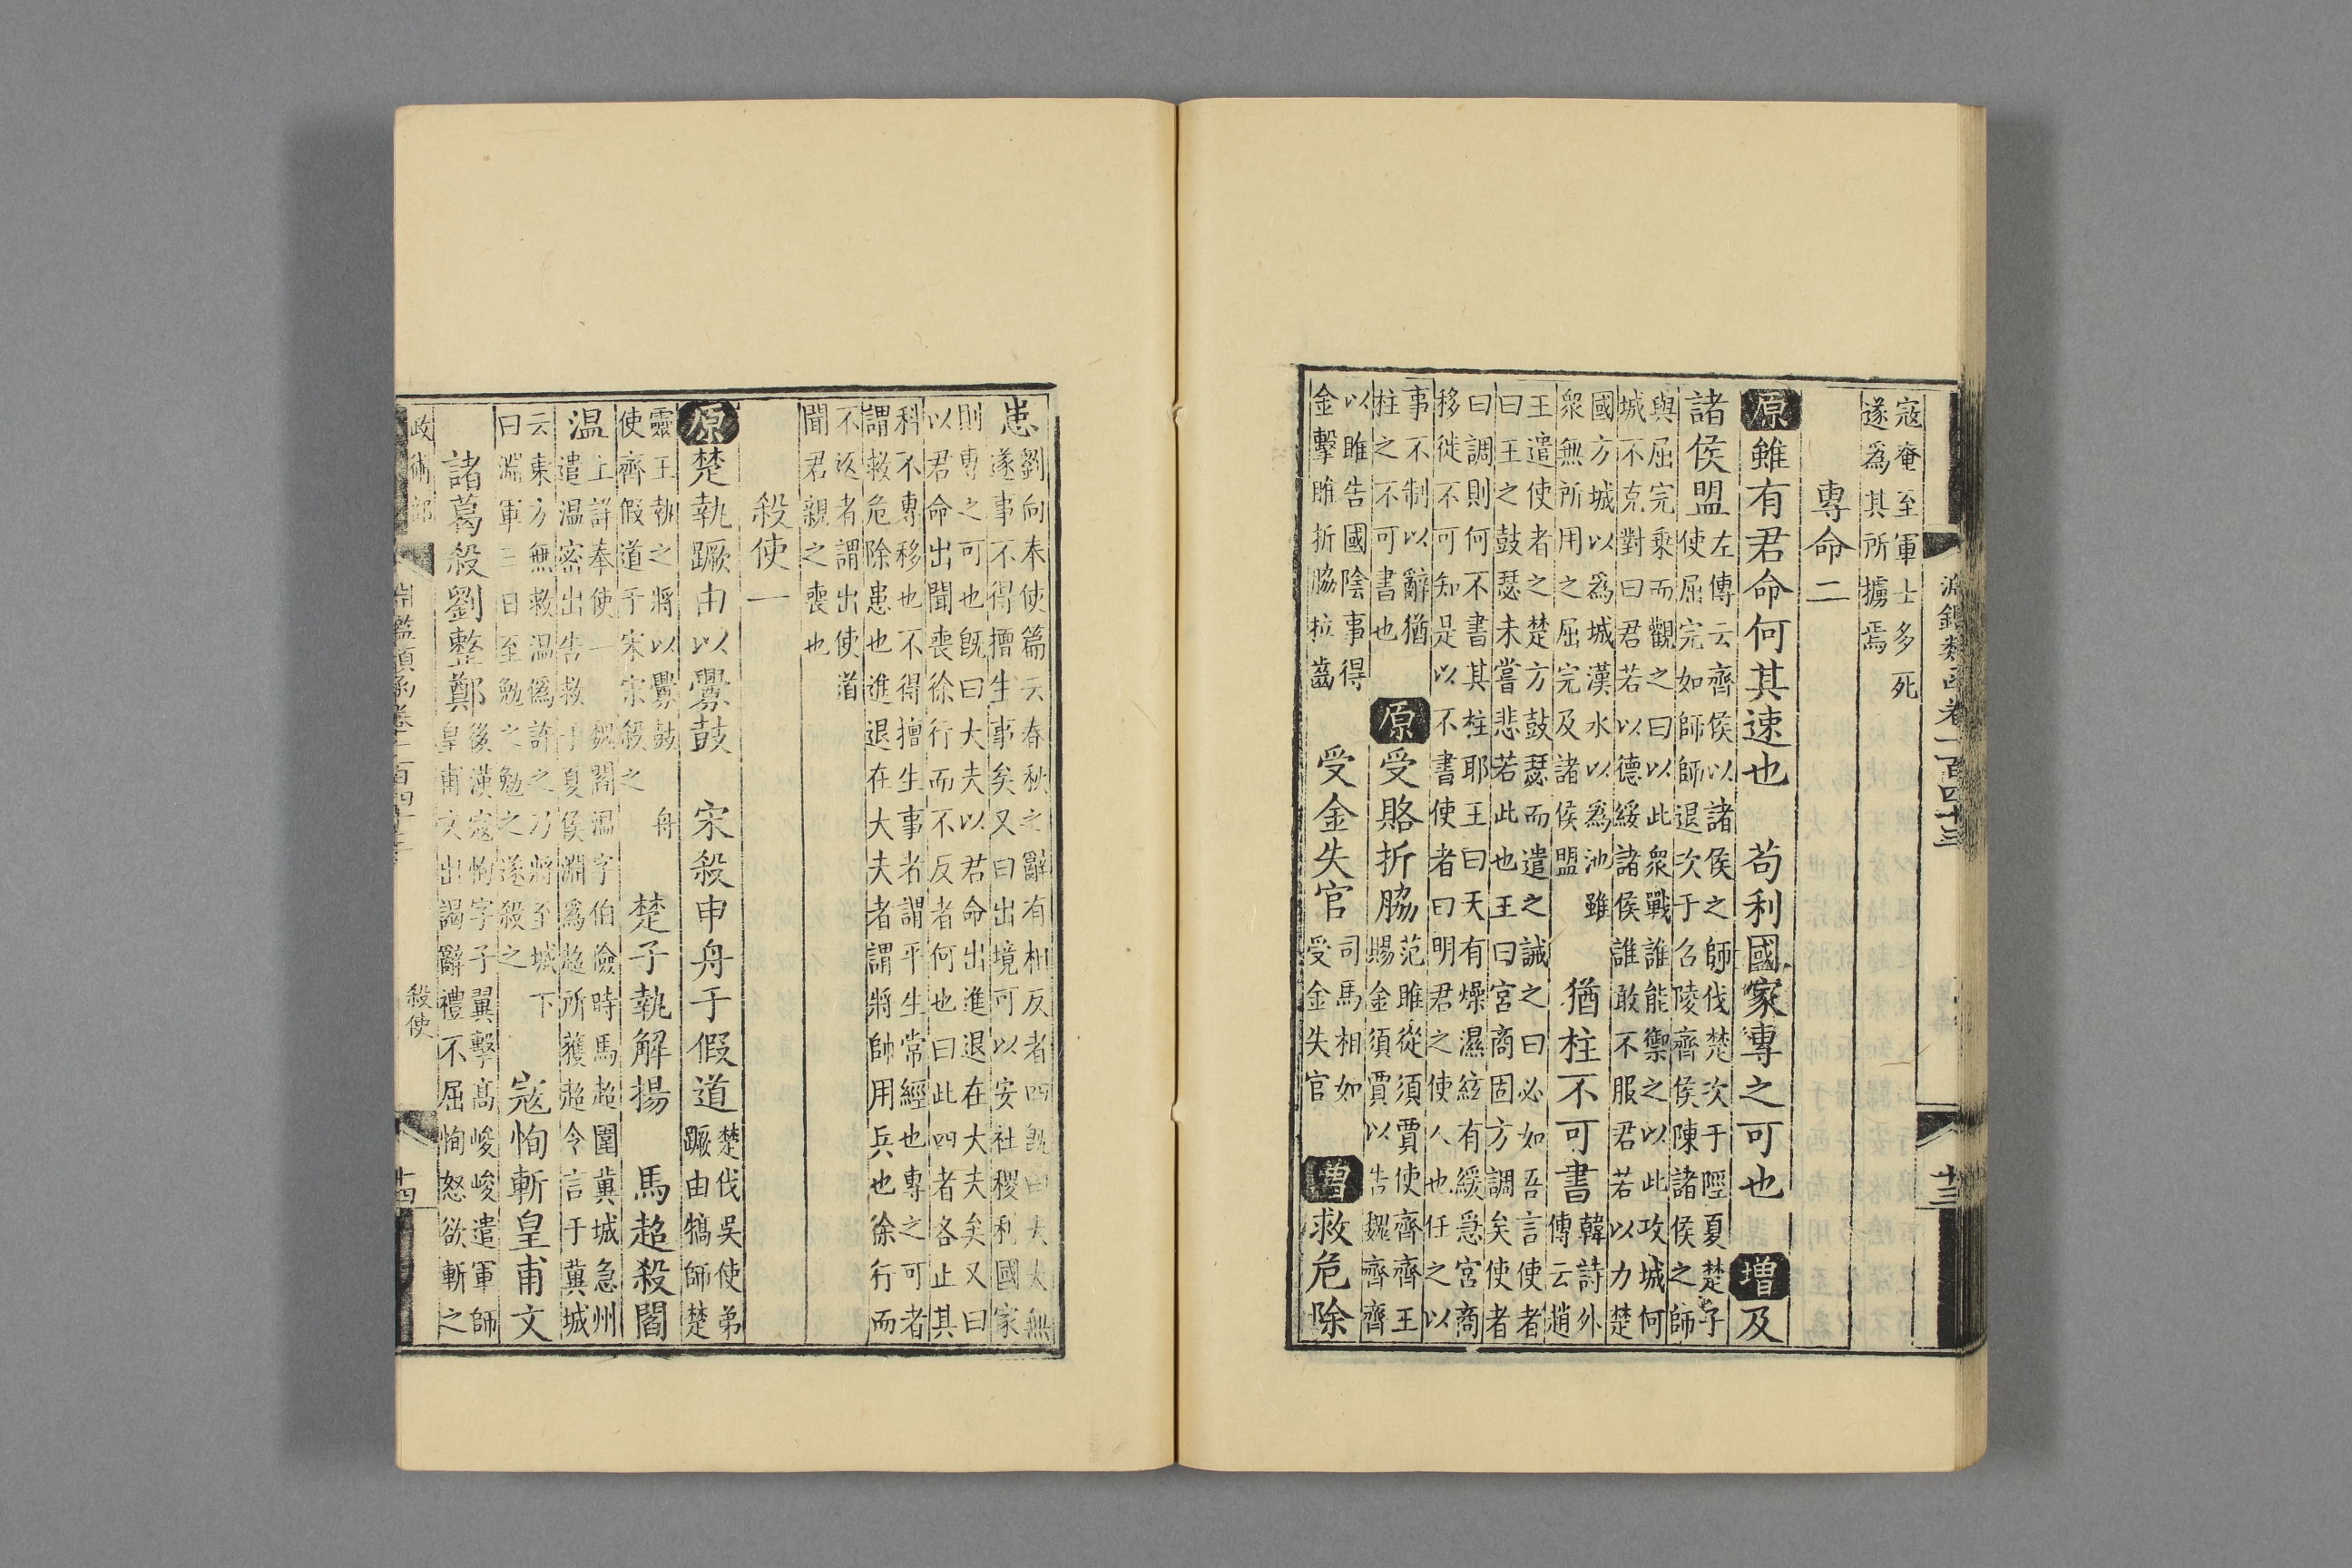 淵鑑類函卷一百四十三
十三
寇奄至軍士多死
遂爲其所擄焉
專命二
原雖有君命何其速也 苟利國家專之可也 增及
諸侯盟左傳云齊侯以諸侯之師伐楚次于陘夏楚子
使屈完如師師退次于召陵齊侯陳諸侯之師
與屈完乘而觀之曰以此衆戰誰能禦之以此攻城何
城不克對曰君若以德綏諸侯誰敢不服君若以力楚
國方城以爲城漢水以爲池雖
衆無所用之屈完及諸侯盟 猶柱不可書韓詩外
傳云趙
王遣使者之楚方鼓瑟而遣之誡之曰必如吾言使者
曰王之鼓瑟未嘗悲若此也王曰宮商固方調矣使者
曰調則何不書其柱耶王曰天有燥濕絃有緩急宮商
移徙不可知是以不書使者曰明君之使人也任之以
事不制以辭猶
柱之不可書也 原受賂折脇范雎從須賈使齊齊王
賜金須賈以告魏齊齊
以雎告國陰事得
金擊雎折脇拉齒 受金失官司馬相如
受金失官 增救危除
患劉向奉使篇云春秋之辭有相反者四既曰大夫無
遂事不得擅生事矣又曰出境可以安社稷利國家
則專之可也既曰大夫以君命出進退在大夫矣又曰
以君命出聞喪徐行而不反者何也曰此四者各止其
科不專移也不得擅生事者謂平生常經也專之可者
謂救危除患也進退在大夫者謂將帥用兵也徐行而
不返者謂出使道
聞君親之喪也
殺使一
原楚執蹶由以釁鼓 宋殺申舟于假道楚伐吳使弟
蹶由犒師楚
靈王執之將以釁鼓 舟
使齊假道于宋宋殺之 楚子執解揚 馬超殺閻
温上詳奉使一 魏閻温字伯儉時馬超圍冀城急州
遣温密出告救于夏侯淵爲超所獲超令言于冀城
云東方無救温僞許之乃將至城下
曰淵軍三日至勉之勉之遂殺之 寇恂斬皇甫文
諸葛殺劉整鄭後漢寇恂字子翼擊高峻峻遣軍師
皇甫文出謁辭禮不屈恂怒欲斬之
政術部
淵鑑類函卷一百四十三
殺使
十四